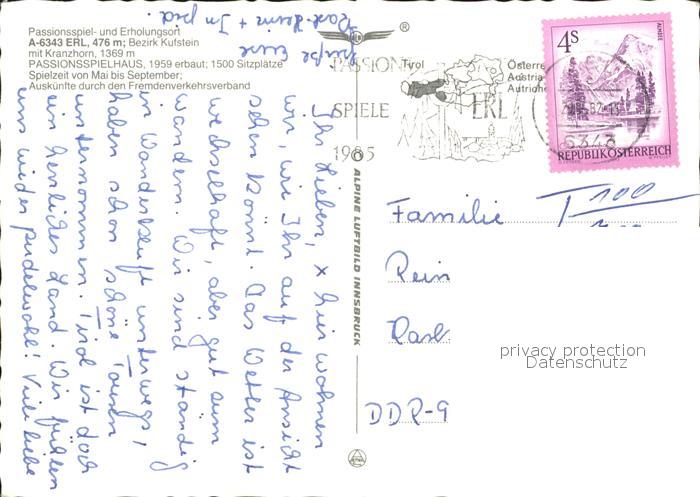 Passionsspiel- und Erholungsort
A-6343 ERL, 476 m; Bezirk Kufstein
mit Kranzhorn, 1369 m
PASSIONSSPIELHAUS, 1959 erbaut; 1500 Sitzplätze
Spielzeit von Mai bis September;
Auskünfte durch den Fremdenverkehrsverband
®
Tirol
Österre
Austria
Autrich
PASSION
SPIELE
1985
ERL
6343
4S
ALMSEE
REPUBLIK ÖSTERREICH
ALPINE LUFTBILD INNSBRUCK
Ihr Lieben, x hier wohnen
wir, wie Ihr auf der Ansicht
sehen könnt. Das Wetter ist
wechselhaft, aber gut zum
wandern. Wir sind ständig
in Wanderkluft unterwegs,
haben schon schöne Touren
unternommen. Tirol ist doch
ein herrliches Land. Wir fühlen
uns wieder pudelwohl! Viele liebe
Grüße Eure
Karl-Heinz + Ingrid.
Familie
T 100
Rein
Karl
DDR-9
privacy protection
Datenschutz